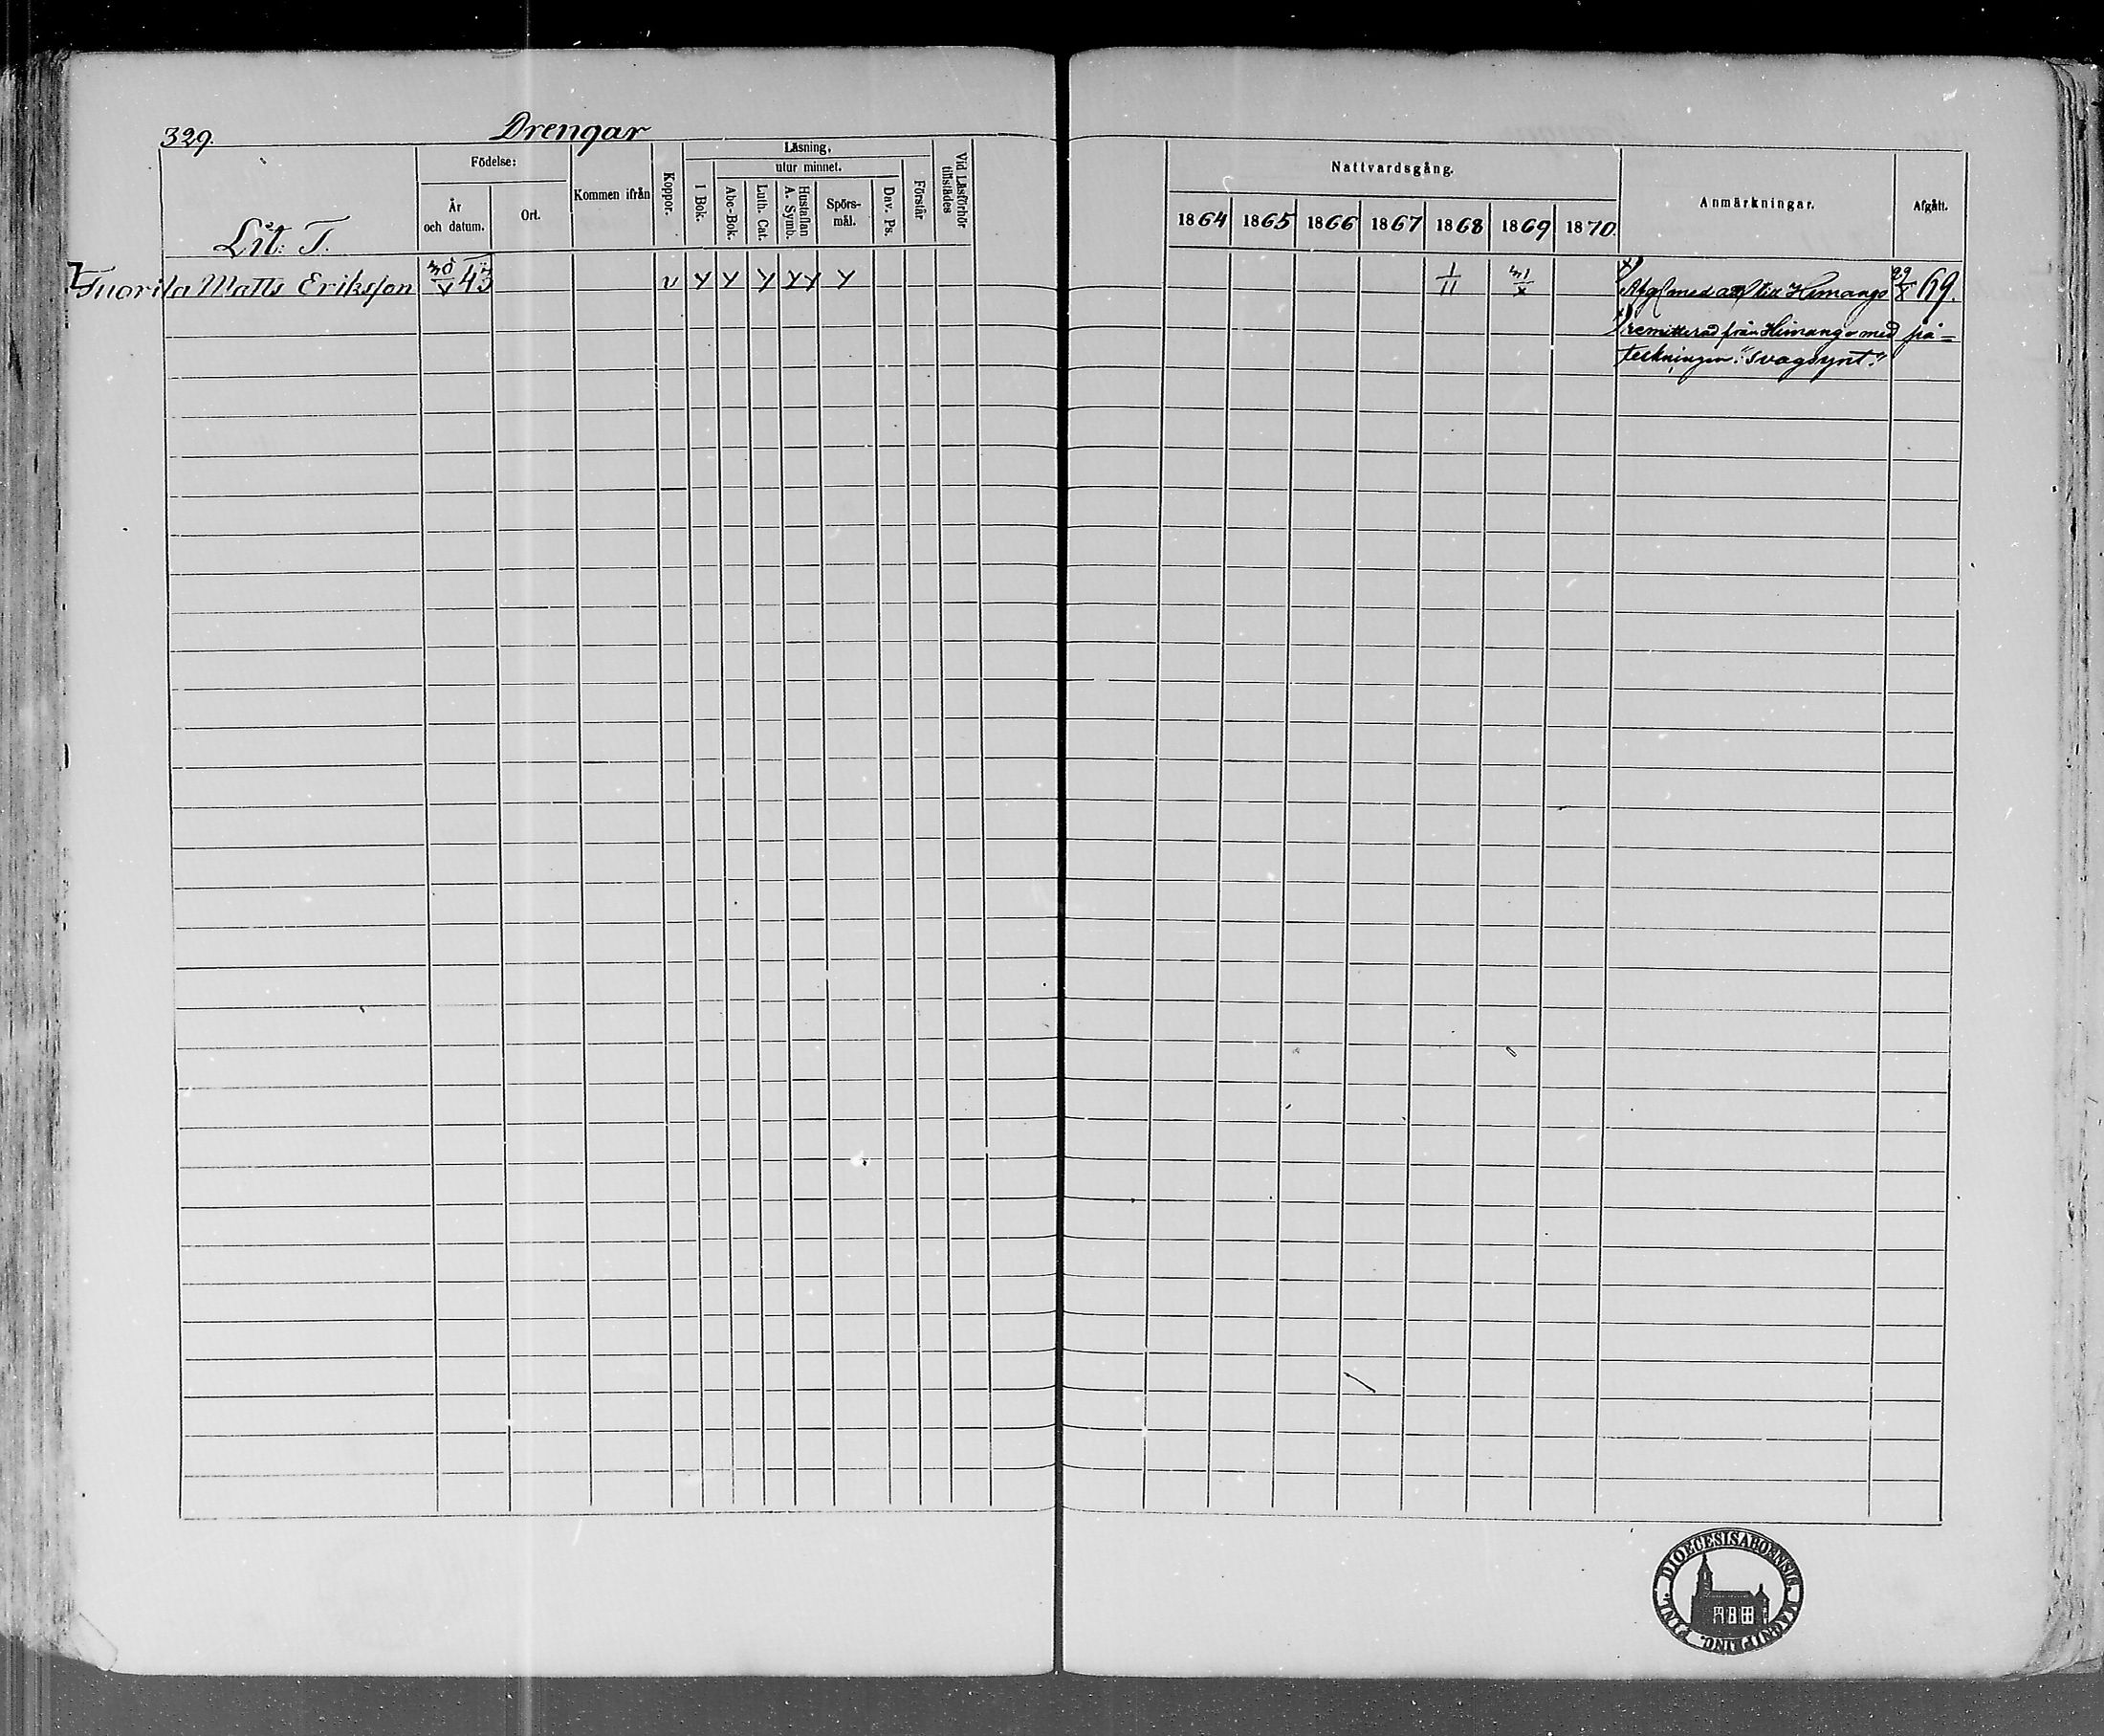 329. Drengar
Läsning,
Födelse:
utur minnet.
Vid Läsförhör tillstädes
Nattvardsgång.
Kommen ifrån
Koppor.
I Bok.
Abc-Bok.
Luth. Cat.
Hustaflan A. Symb.
Spörs-
mål.
Dav. Ps.
Förstår
Anmärkningar.
Afgått.
År
och datum.
Ort.
1864 1865 1866 1867 1868 1869 1870.
Lit: T.
Tuorila Matts Eriksson 30/V 43 v y y y y y y 1/11 31/X Afg med till Himango 29/X 69.
remitterad från Himango med på=
teckningen: "Svagsynt."
DIOECESIS ABOENSIS MAGNI PRINC. FINL.